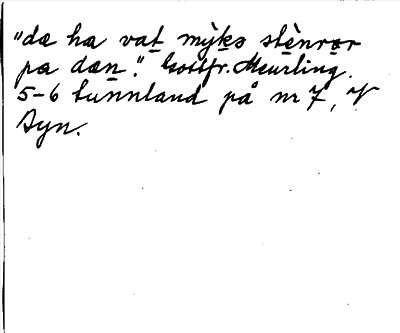 "dæ ha vat mỳkə stènrər
pa dæn." Gottfr. Meurling.
5-6 tunnland på nr 7, V
Syn.